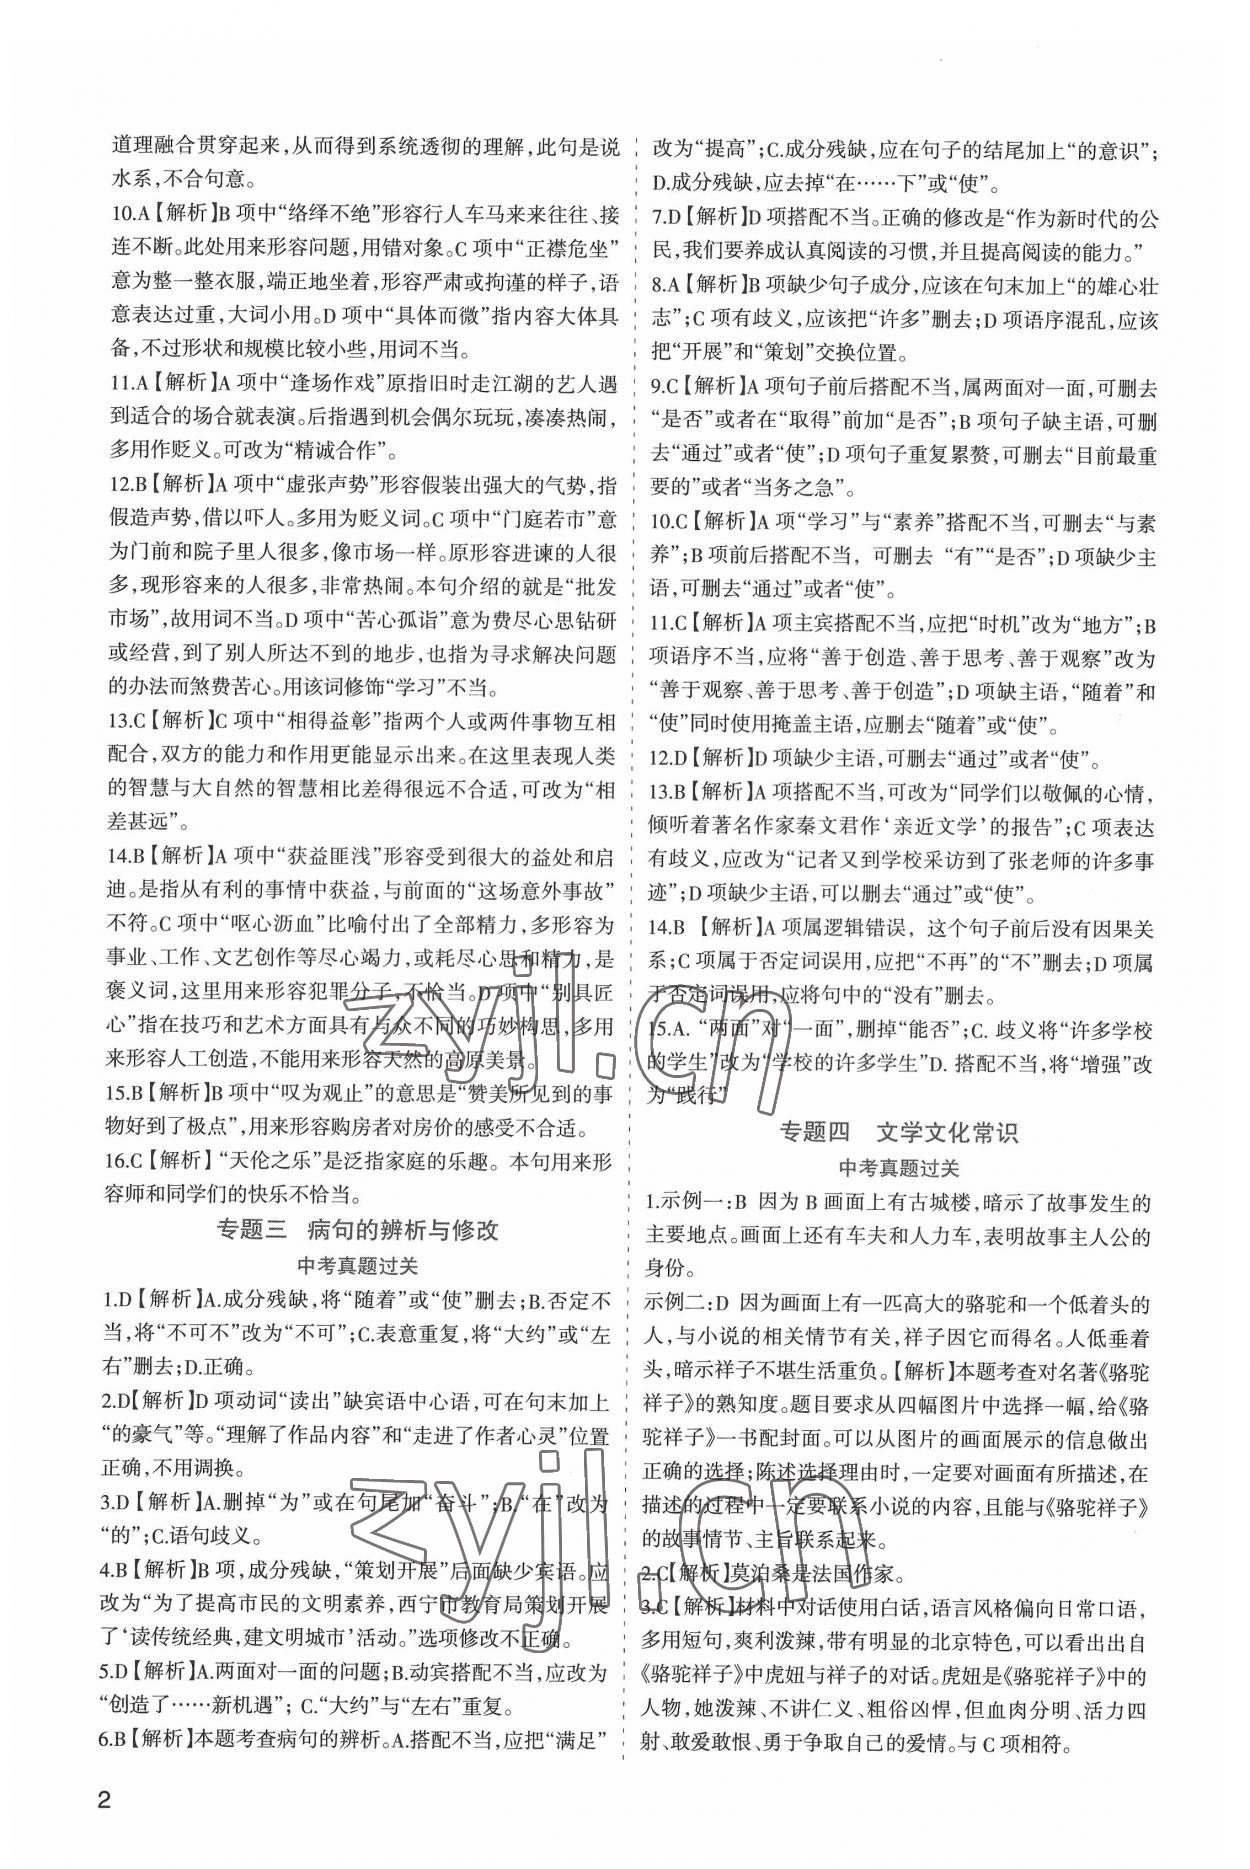 道理融合贯穿起来,从而得到系统透彻的理解,此句是说
水系,不合句意。
10.A【解析】B 项中“络绎不绝”形容行人车马来来往往、接
连不断。此处用来形容问题,用错对象。C 项中“正襟危坐”
意为整一整衣服,端正地坐着,形容严肃或拘谨的样子,语
意表达过重,大词小用。D 项中“具体而微”指内容大体具
备,不过形状和规模比较小些,用词不当。
11.A【解析】A 项中“逢场作戏”原指旧时走江湖的艺人遇
到适合的场合就表演。后指遇到机会偶尔玩玩,凑凑热闹,
多用作贬义。可改为“精诚合作”。
12.B【解析】A 项中“虚张声势”形容假装出强大的气势,指
假造声势,借以吓人。多用为贬义词。C 项中“门庭若市”意
为门前和院子里人很多,像市场一样。原形容进谏的人很
多,现形容来的人很多,非常热闹。本句介绍的就是“批发
市场”,故用词不当。D 项中“苦心孤诣”意为费尽心思钻研
或经营,到了别人所达不到的地步,也指为寻求解决问题
的办法而煞费苦心。用该词修饰“学习”不当。
13.C【解析】C 项中“相得益彰”指两个人或两件事物互相
配合,双方的能力和作用更能显示出来。在这里表现人类
的智慧与大自然的智慧相比差得很远不合适,可改为“相
差甚远”。
14.B【解析】A 项中“获益匪浅”形容受到很大的益处和启
迪。是指从有利的事情中获益,与前面的“这场意外事故”
不符。C 项中“呕心沥血”比喻付出了全部精力,多形容为
事业、工作、文艺创作等尽心竭力,或耗尽心思和精力,是
褒义词,这里用来形容犯罪分子,不恰当。D 项中“别具匠
心”指在技巧和艺术方面具有与众不同的巧妙构思,多用
来形容人工创造,不能用来形容天然的高原美景。
15.B【解析】B 项中“叹为观止”的意思是“赞美所见到的事
物好到了极点”,用来形容购房者对房价的感受不合适。
16.C【解析】 “天伦之乐”是泛指家庭的乐趣。本句用来形
容师和同学们的快乐不恰当。
专题三 病句的辨析与修改
中考真题过关
1.D【解析】A.成分残缺,将“随着”或“使”删去;B.否定不
当,将“不可不”改为“不可”;C.表意重复,将“大约”或“左
右”删去;D.正确。
2.D【解析】D 项动词“读出”缺宾语中心语,可在句末加上
“的豪气”等。“理解了作品内容”和“走进了作者心灵”位置
正确,不用调换。
3.D【解析】A.删掉“为”或在句尾加“奋斗”;B.“在”改为
“的”;C.语句歧义。
4.B【解析】B 项,成分残缺,“策划开展”后面缺少宾语。应
改为“为了提高市民的文明素养,西宁市教育局策划开展
了‘读传统经典,建文明城市’活动。”选项修改不正确。
5.D【解析】A.两面对一面的问题;B.动宾搭配不当,应改为
“创造了……新机遇”;C.“大约”与“左右”重复。
6.B【解析】本题考查病句的辨析。A.搭配不当,应把“满足”
改为“提高”;C.成分残缺,应在句子的结尾加上“的意识”;
D.成分残缺,应去掉“在……下”或“使”。
7.D【解析】D 项搭配不当。正确的修改是“作为新时代的公
民,我们要养成认真阅读的习惯,并且提高阅读的能力。”
8.A【解析】B 项缺少句子成分,应该在句末加上“的雄心壮
志”;C 项有歧义,应该把“许多”删去;D 项语序混乱,应该
把“开展”和“策划”交换位置。
9.C【解析】A 项句子前后搭配不当,属两面对一面,可删去
“是否”或者在“取得”前加“是否”;B 项句子缺主语,可删
去“通过”或者“使”;D 项句子重复累赘,可删去“目前最重
要的”或者“当务之急”。
10.C【解析】A 项“学习”与“素养”搭配不当,可删去“与素
养”;B 项前后搭配不当,可删去 “有”“是否”;D 项缺少主
语,可删去“通过”或者“使”。
11.C【解析】A 项主宾搭配不当,应把“时机”改为“地方”;B
项语序不当,应将“善于创造、善于思考、善于观察”改为
“善于观察、善于思考、善于创造”;D 项缺主语,“随着”和
“使”同时使用掩盖主语,应删去“随着”或“使”。
12.D【解析】D 项缺少主语,可删去“通过”或者“使”。
13.B【解析】A 项搭配不当,可改为“同学们以敬佩的心情,
倾听着著名作家秦文君作‘亲近文学’的报告”;C 项表达
有歧义,应改为“记者又到学校采访到了张老师的许多事
迹”;D 项缺少主语,可以删去“通过”或“使”。
14.B 【解析】A 项属逻辑错误,这个句子前后没有因果关
系;C 项属于否定词误用,应把“不再”的“不”删去;D 项属
于否定词误用,应将句中的“没有”删去。
15.A. “两面”对“一面”,删掉“能否”;C. 歧义将“许多学校
的学生”改为“学校的许多学生”D. 搭配不当,将“增强”改
为“践行”
专题四 文学文化常识
中考真题过关
1.示例一:B 因为 B 画面上有古城楼,暗示了故事发生的
主要地点。画面上还有车夫和人力车,表明故事主人公的
身份。
示例二:D 因为画面上有一匹高大的骆驼和一个低着头的
人,与小说的相关情节有关,祥子因它而得名。人低垂着
头,暗示祥子不堪生活重负。【解析】本题考查对名著《骆驼
祥子》的熟知度。题目要求从四幅图片中选择一幅,给《骆
驼祥子》一书配封面。可以从图片的画面展示的信息做出
正确的选择;陈述选择理由时,一定要对画面有所描述,在
描述的过程中一定要联系小说的内容,且能与《骆驼祥子》
的故事情节、主旨联系起来。
2.C【解析】莫泊桑是法国作家。
3.C【解析】材料中对话使用白话,语言风格偏向日常口语,
多用短句,爽利泼辣,带有明显的北京特色,可以看出出自
《骆驼祥子》中虎妞与祥子的对话。虎妞是《骆驼祥子》中的
人物,她泼辣、不讲仁义、粗俗凶悍,但血肉分明、活力四
射、敢爱敢恨、勇于争取自己的爱情。与 C 项相符。
2
zyjl.cn
zyjl.cn